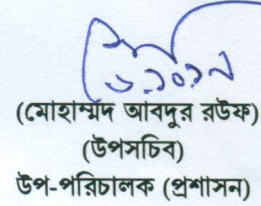 (মোহাম্মদ আবদুর রউফ)
(উপসচিব)
উপ-পরিচালক (প্রশাসন)